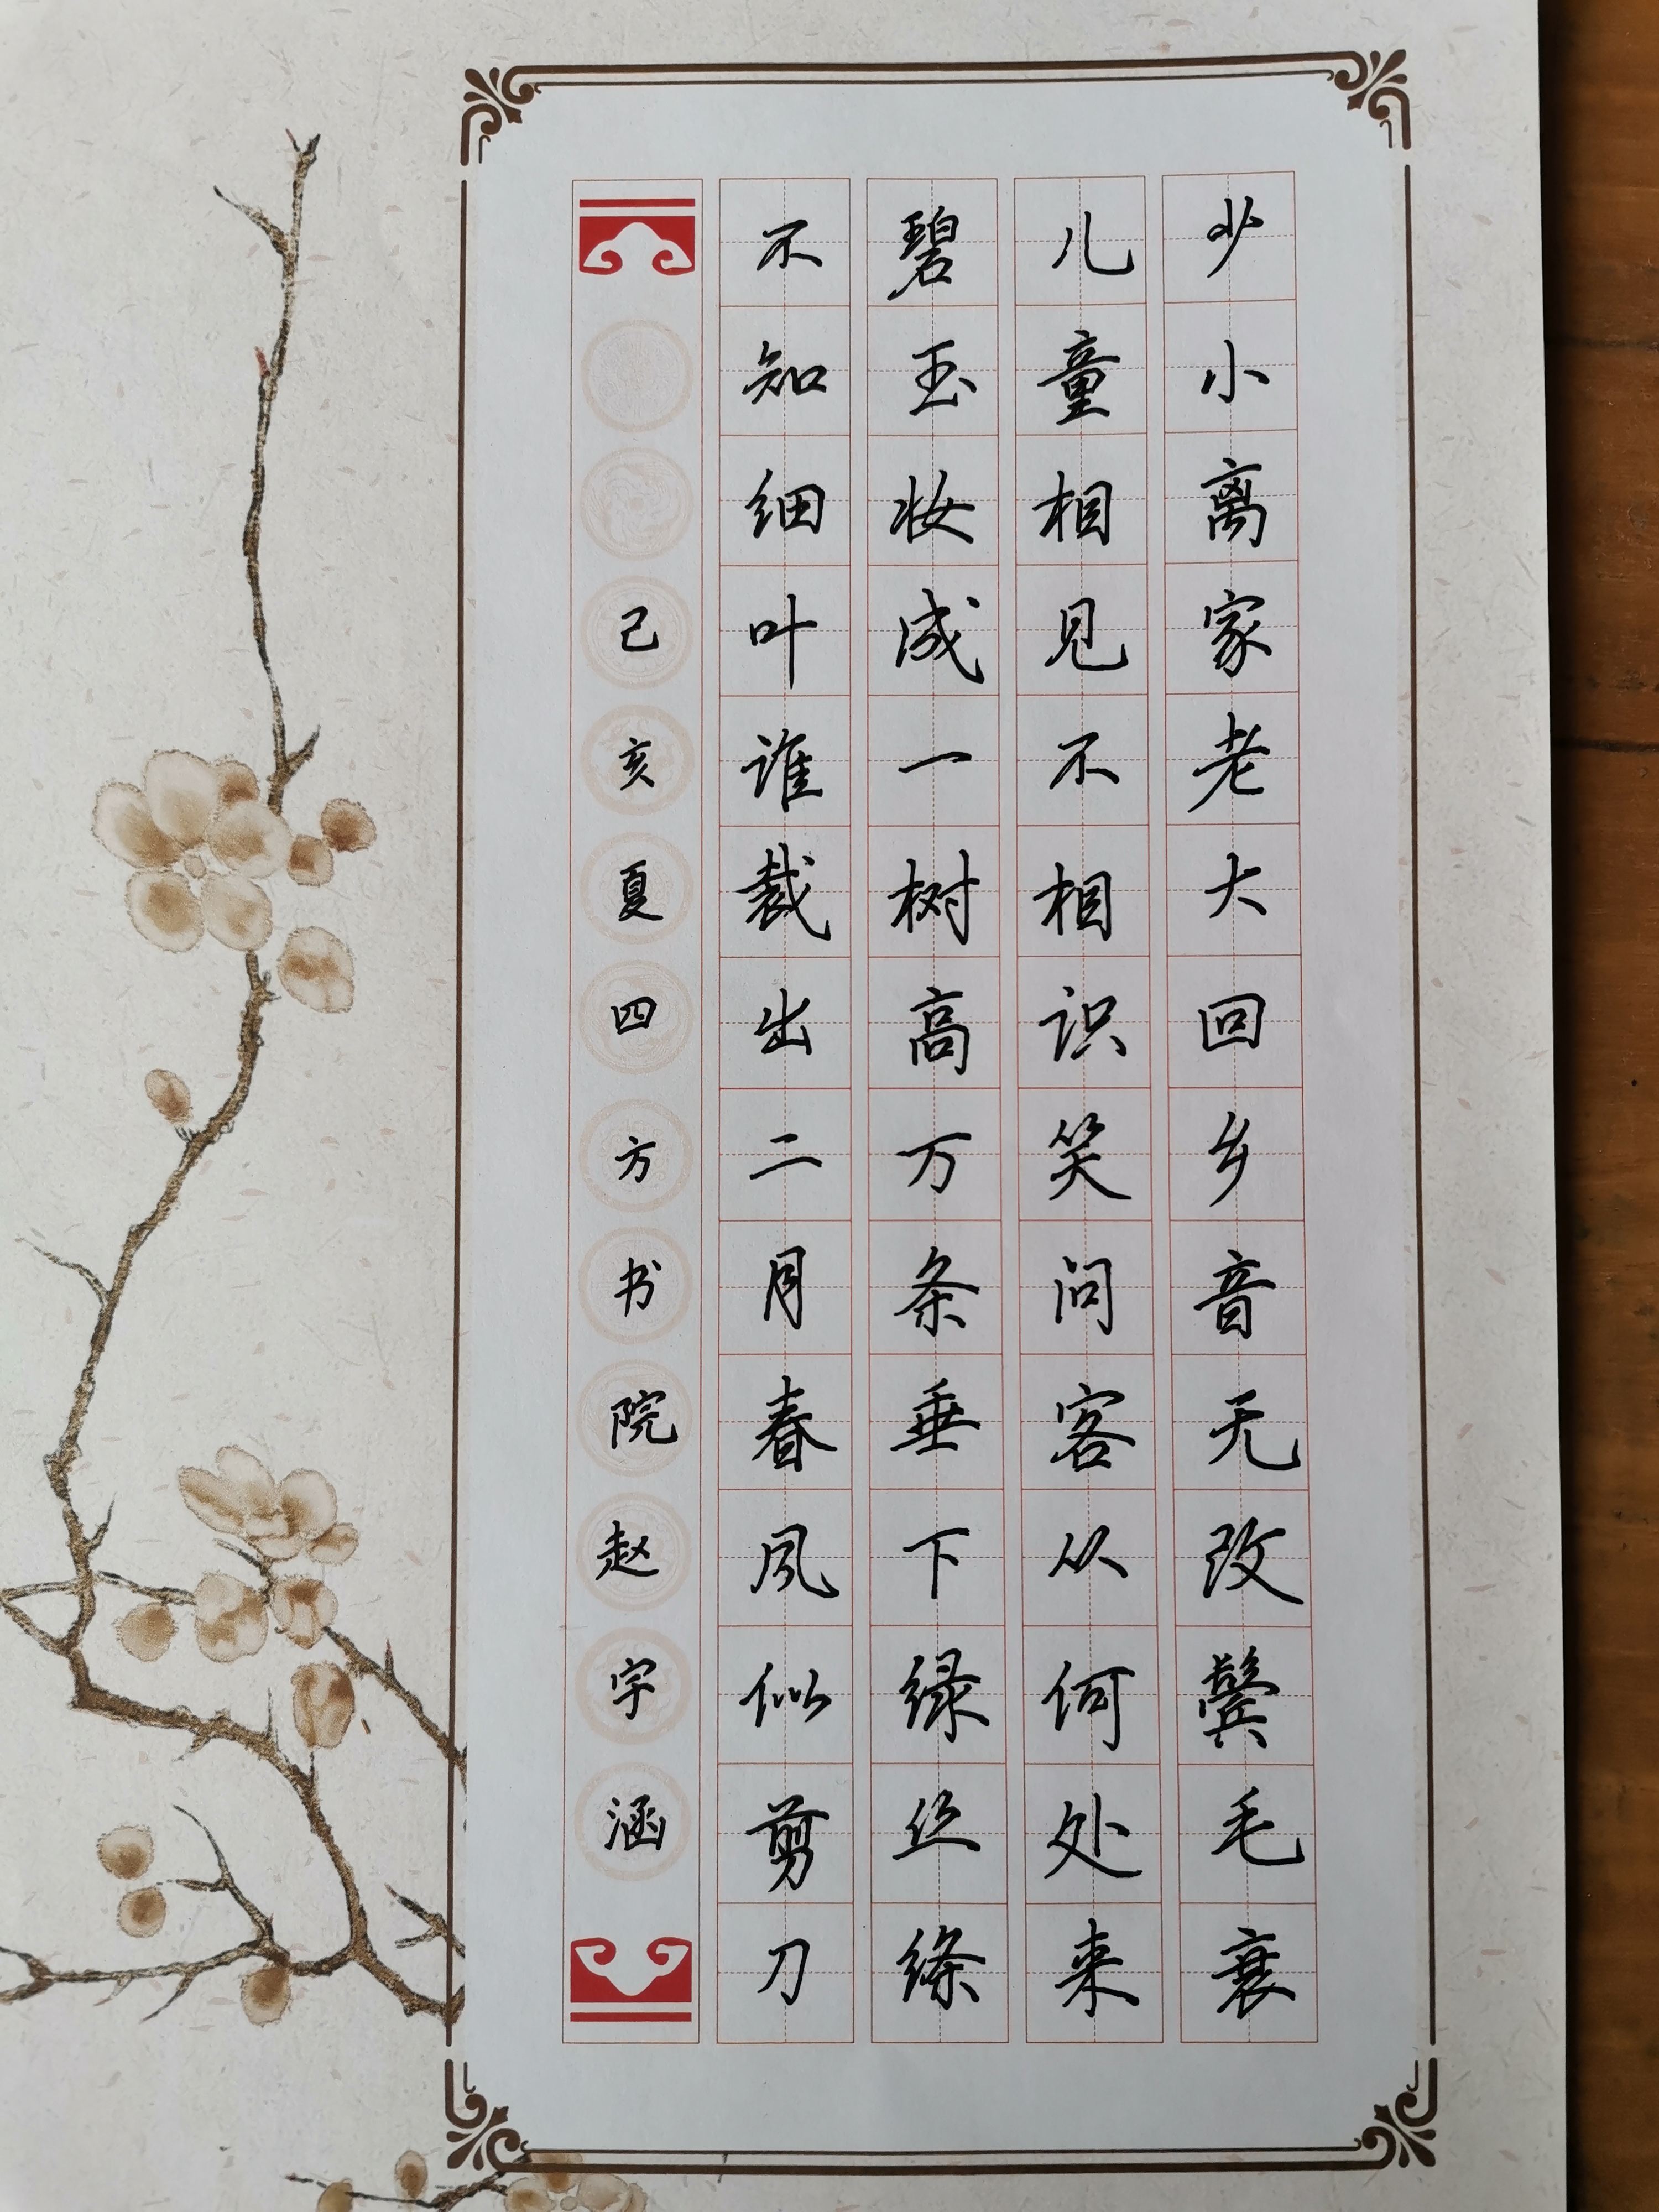 少小离家老大回乡音无改鬓毛衰
儿童相见不相识笑问客从何处来
碧玉妆成一树高万条垂下绿丝绦
不知细叶谁裁出二月春风似剪刀
己亥夏四方书院赵宇涵